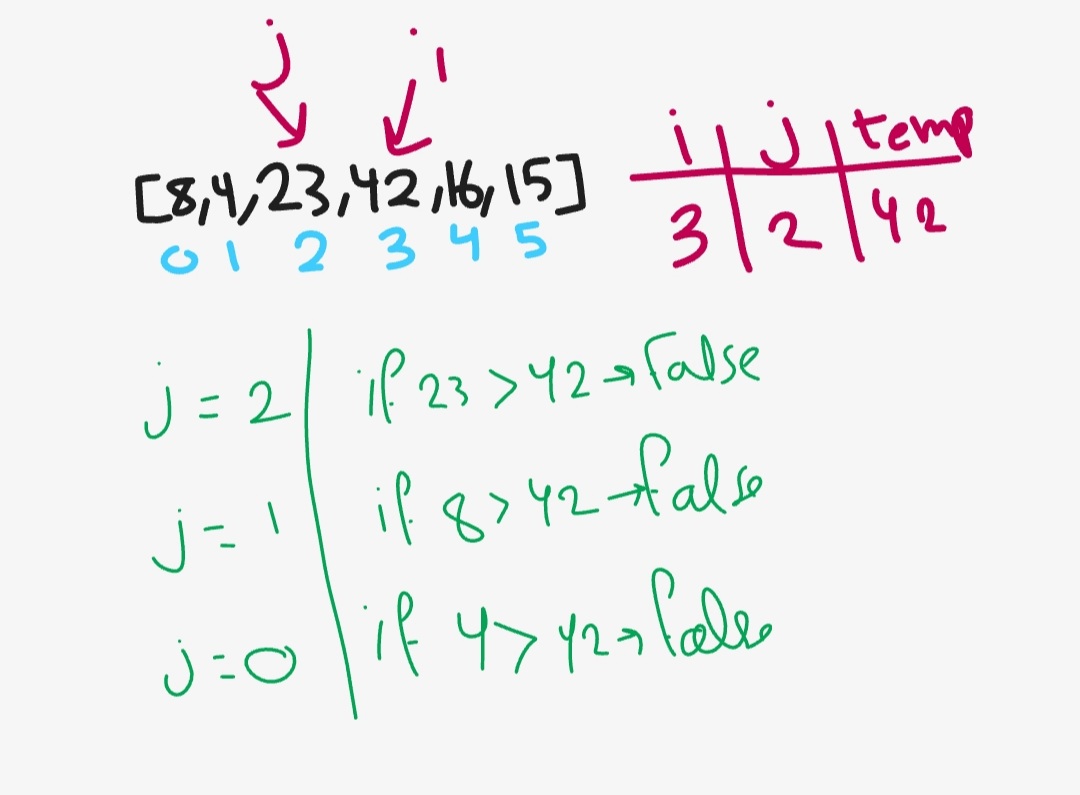 j i
[8,4,23,42,16,15]
0 1 2 3 4 5
i j temp
3 2 42
j = 2 if 23 > 42 → False
j = 1 if 8 > 42 → false
j = 0 if 4 > 42 → false